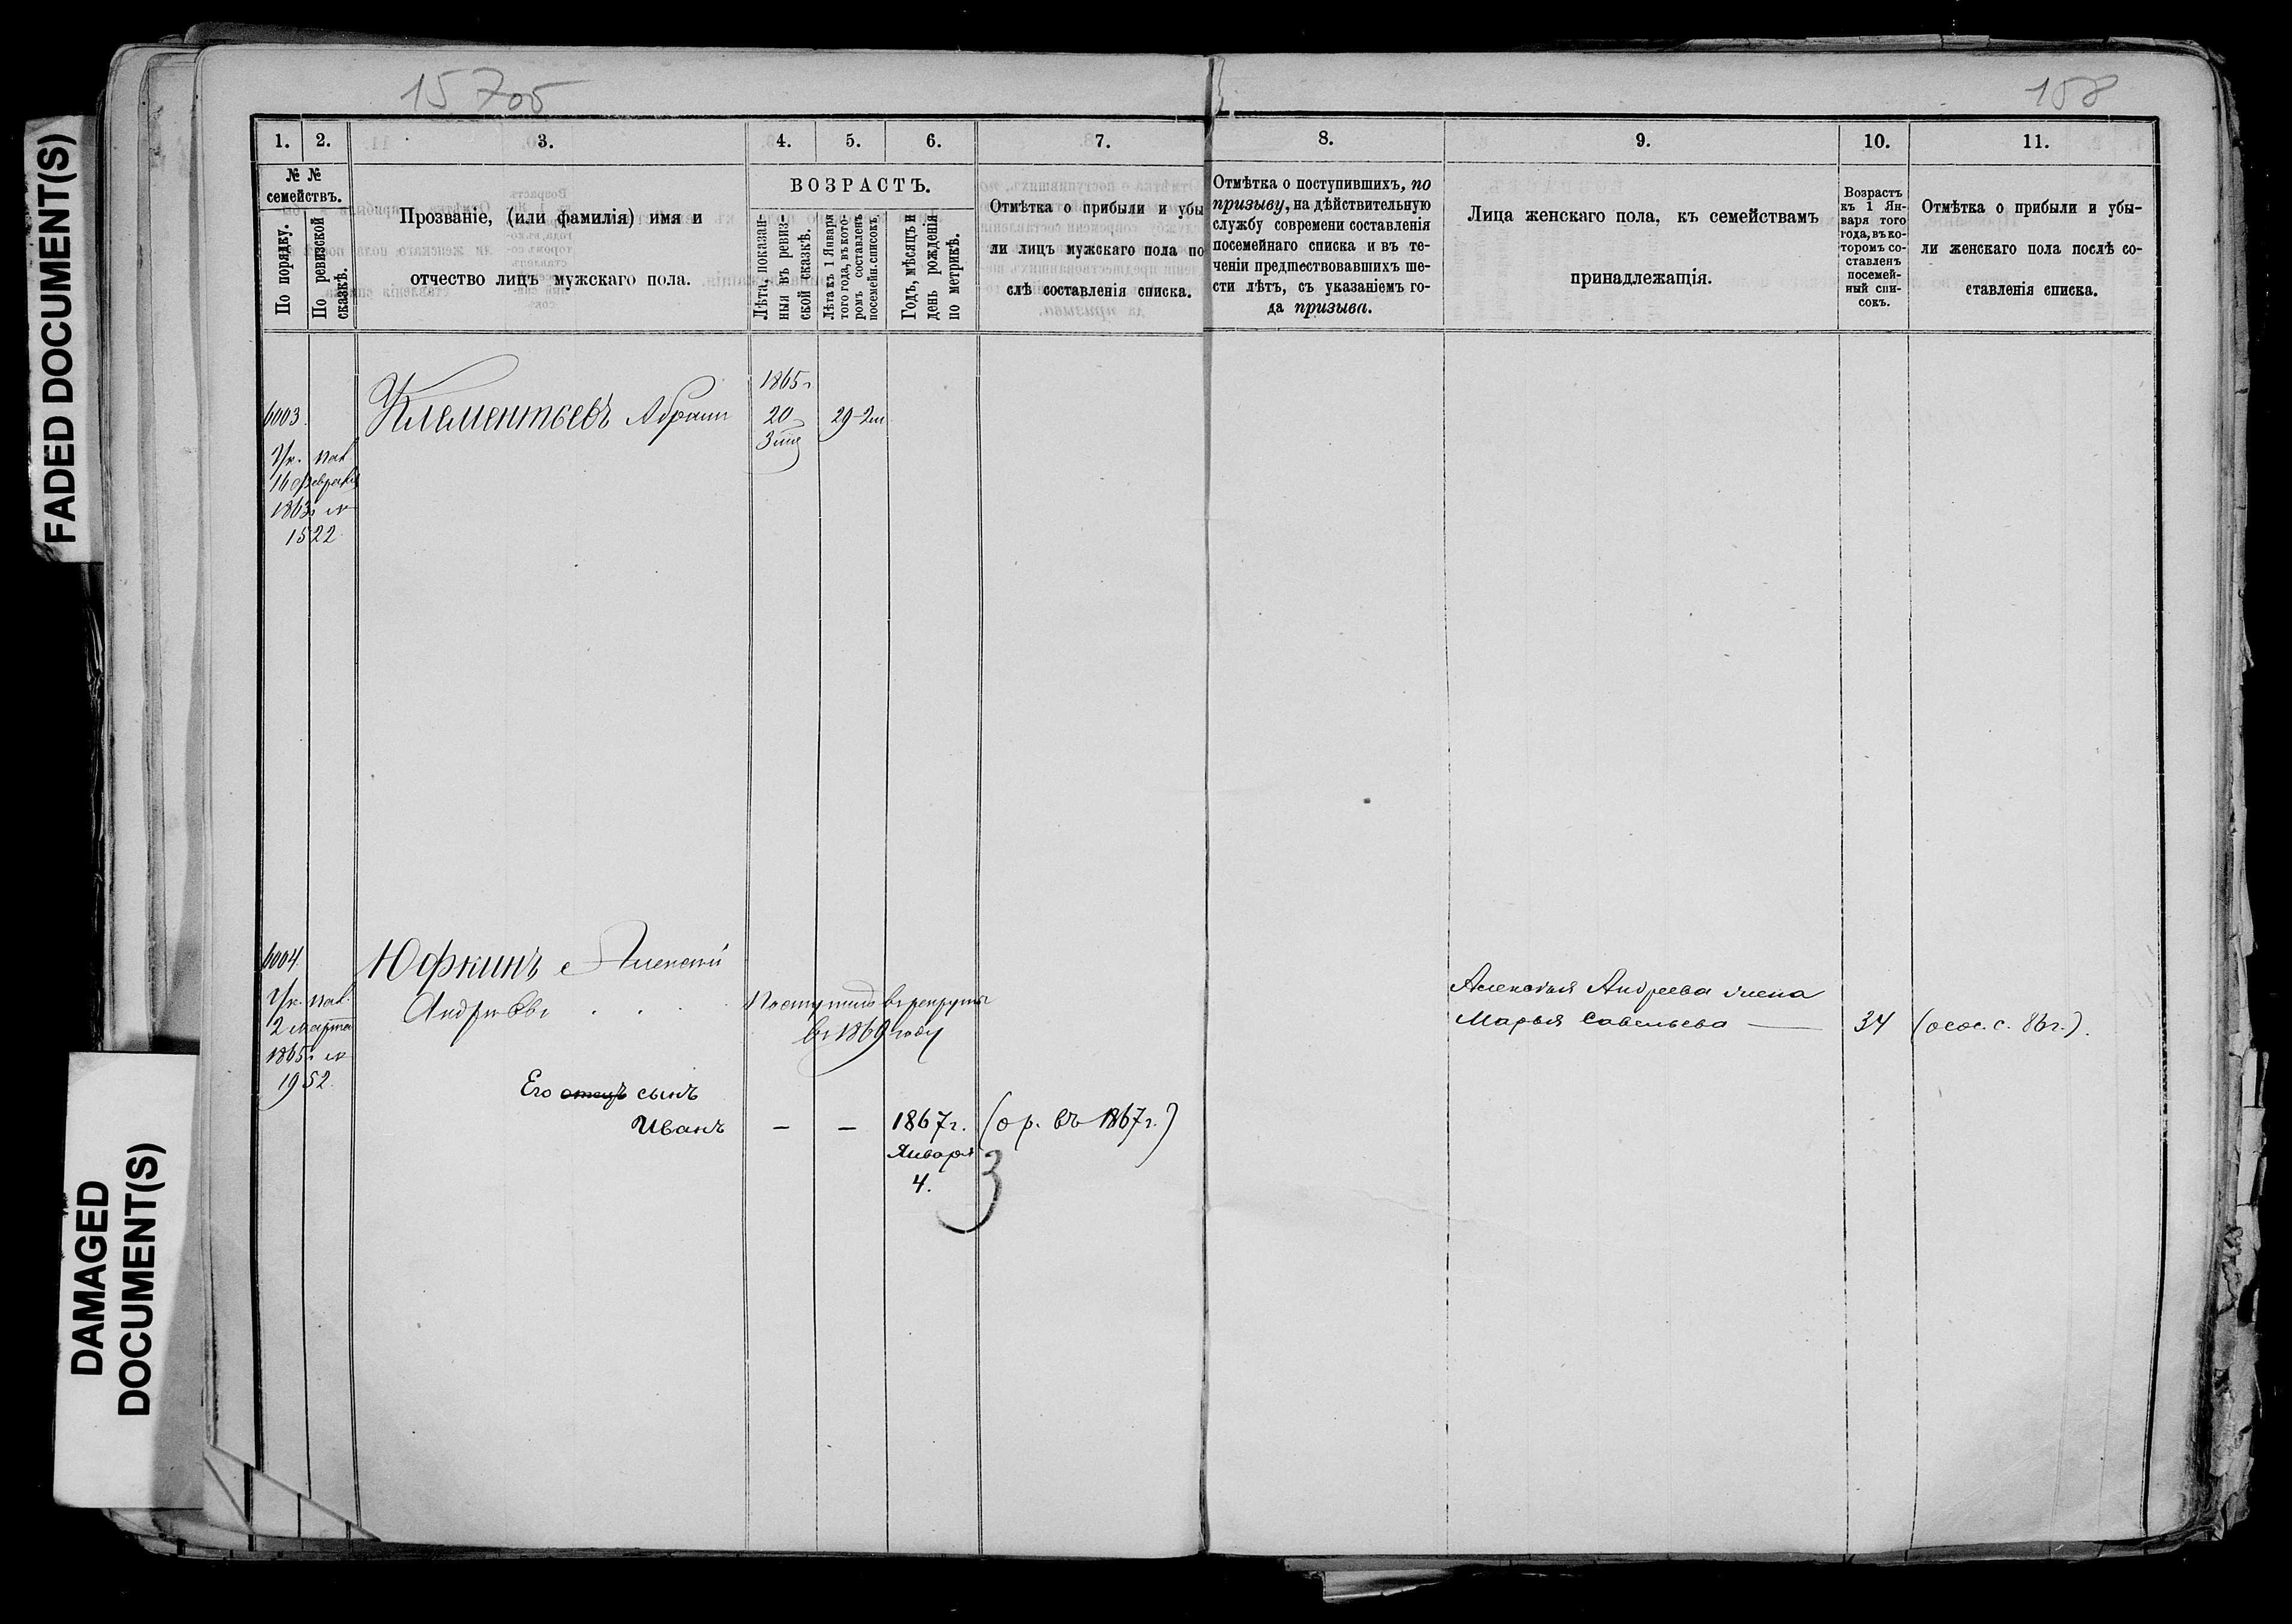 FADED DOCUMENT(S)
DAMAGED
DOCUMENT(S)
15705
158
1. 2. 3. 4. 5. 6. 7. 8. 9. 10. 11.
№ №
семействъ.
По порядку.
По ревизской
сказкѣ.
Прозваніе, (или фамилія) имя и
отчество лицъ мужскаго пола.
ВОЗРАСТЪ.
Лѣта, показан-
ныя въ ревиз-
ской сказкѣ.
Лѣта къ 1 Января
того года, въ кото-
ромъ составленъ
посемейн. списокъ.
Годъ, мѣсяцъ и
день рожденія
по метрикѣ.
Отмѣтка о прибыли и убы
ли лицъ мужскаго пола по
слѣ составленія списка.
Отмѣтка о поступившихъ, по
призыву, на дѣйствительную
службу современи составленія
посемейнаго списка и въ те-
ченіи предшествовавшихъ ше-
сти лѣтъ, съ указаніемъ го-
да призыва.
Лица женскаго пола, къ семействамъ
принадлежащія.
Возрастъ
къ 1 Ян-
варя того
года, въ ко-
торомъ со-
ставленъ
посемей-
ный спи-
сокъ.
Отмѣтка о прибыли и убы-
ли женскаго пола послѣ со-
ставленія списка.
1865г
6003 Клементьевъ Абрамъ 20 29-2м
3мц
Ук. пал.
16 февраля
1863г №
1522
6004 Юфкинъ Алексѣй
Ук. пал. Андреевъ Поступилъ въ рекруты
2 марта въ 1869 году
1865г №
1952
Алексѣя Андреева жена
Марья Савельева — 34 (осос. с. 86г.).
Его отецъ сынъ
Иванъ — — 1867г. (ор. въ 1867г.)
Января
4.
3